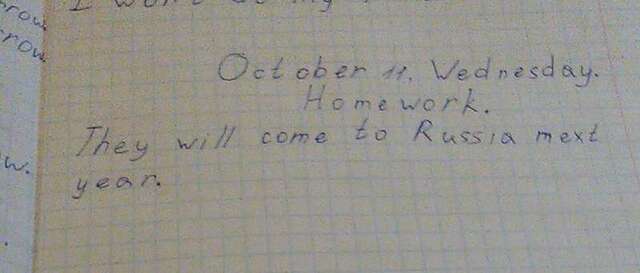 row
I won't
row
October 11, Wednesday.
Homework.
They will come to Russia mext
w.
year.